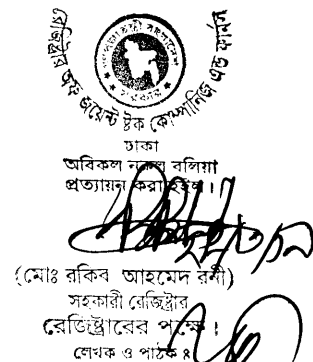 গণপ্রজাতন্ত্রী বাংলাদেশ
সরকার
রেজিস্ট্রার অফ জয়েন্ট ষ্টক কোম্পানিজ এন্ড ফার্মস
ঢাকা
অবিকল নকল বলিয়া
প্রত্যায়ন করা হইল।
(মোঃ রকিব আহমেদ রনী)
সহকারী রেজিষ্ট্রার
রেজিষ্ট্রারের পক্ষে।
লেখক ও পাঠক ঃ